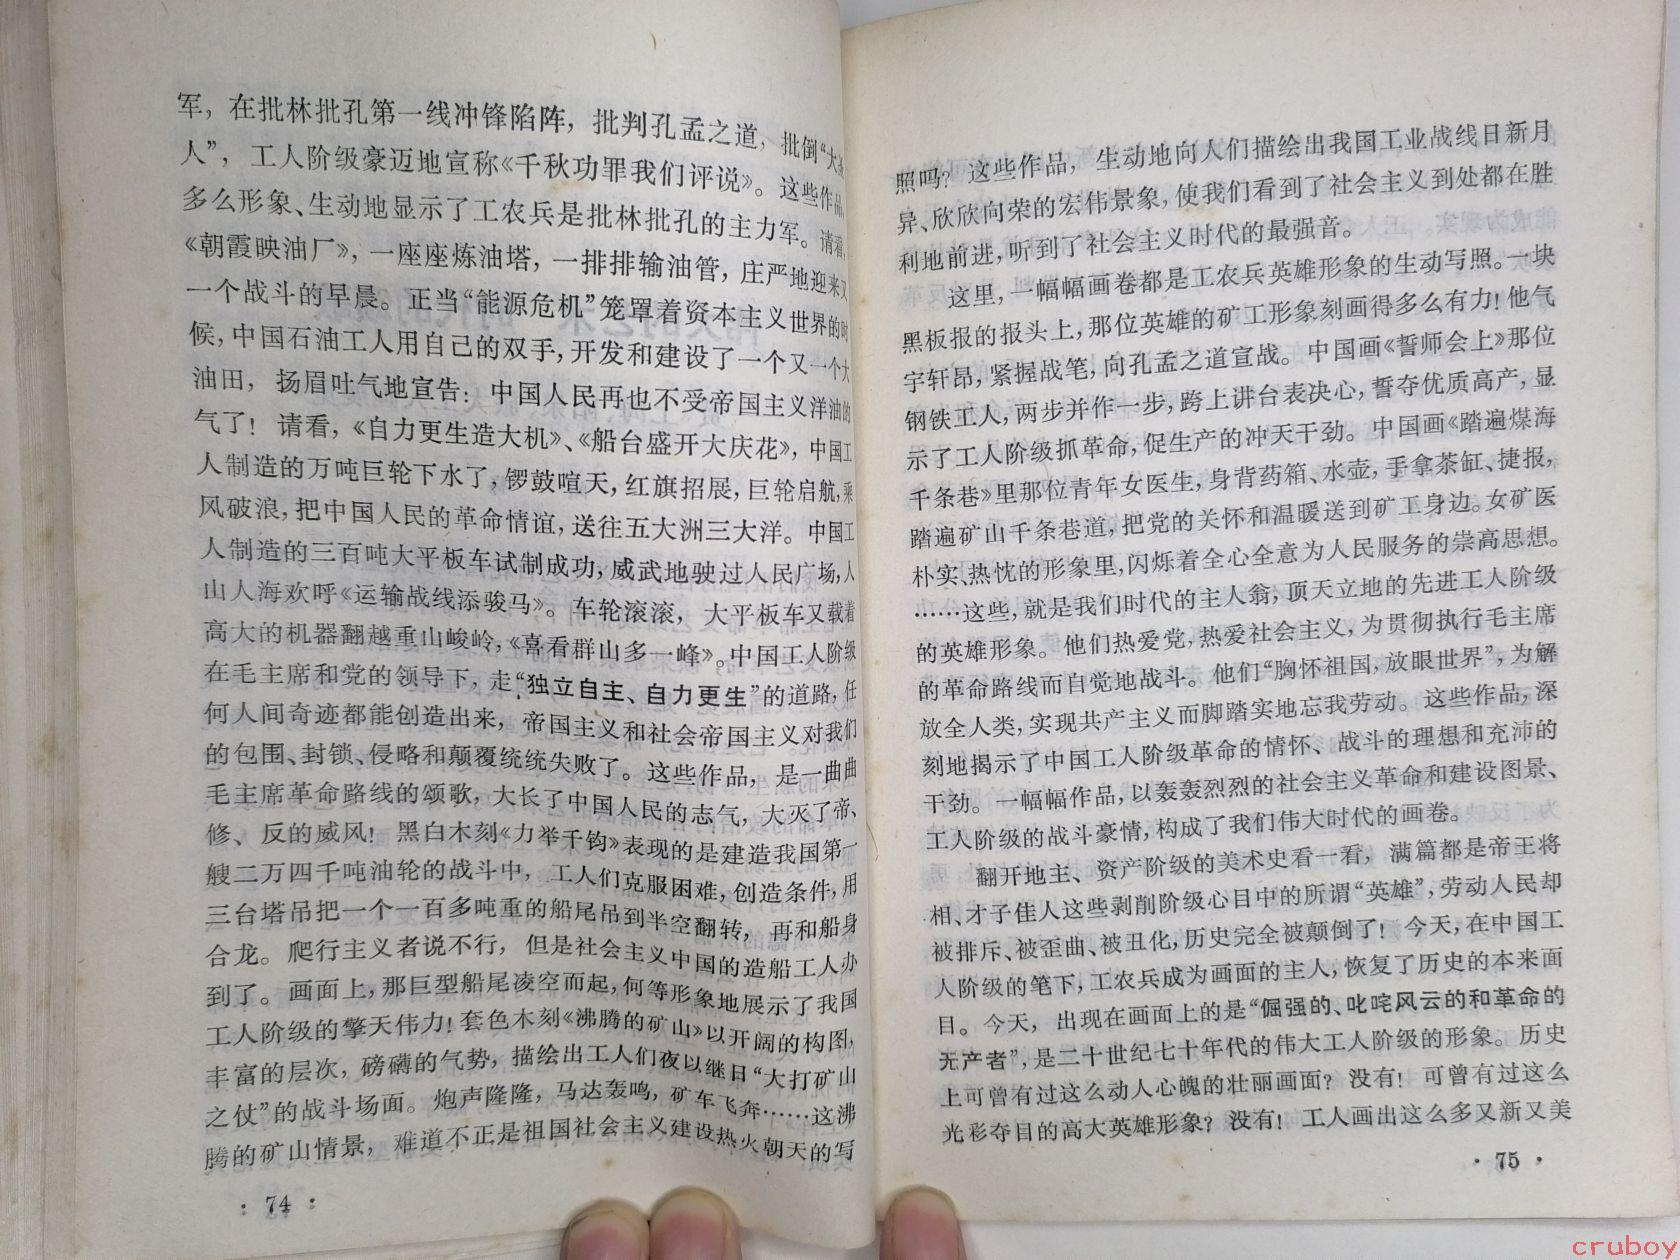 军，在批林批孔第一线冲锋陷阵，批判孔孟之道，批倒“大圣
人”，工人阶级豪迈地宣称《千秋功罪我们评说》。这些作品，
多么形象、生动地显示了工农兵是批林批孔的主力军。请看，
《朝霞映油厂》，一座座炼油塔，一排排输油管，庄严地迎来又
一个战斗的早晨。正当“能源危机”笼罩着资本主义世界的时
候，中国石油工人用自己的双手，开发和建设了一个又一个大
油田，扬眉吐气地宣告：中国人民再也不受帝国主义洋油的
气了！请看，《自力更生造大机》、《船台盛开大庆花》，中国工
人制造的万吨巨轮下水了，锣鼓喧天，红旗招展，巨轮启航，乘
风破浪，把中国人民的革命情谊，送往五大洲三大洋。中国工
人制造的三百吨大平板车试制成功，威武地驶过人民广场，人
山人海欢呼《运输战线添骏马》。车轮滚滚，大平板车又载着
高大的机器翻越重山峻岭，《喜看群山多一峰》。中国工人阶级
在毛主席和党的领导下，走“独立自主、自力更生”的道路，任
何人间奇迹都能创造出来，帝国主义和社会帝国主义对我们
的包围、封锁、侵略和颠覆统统失败了。这些作品，是一曲曲
毛主席革命路线的颂歌，大长了中国人民的志气，大灭了帝、
修、反的威风！黑白木刻《力举千钧》表现的是建造我国第一
艘二万四千吨油轮的战斗中，工人们克服困难，创造条件，用
三台塔吊把一个一百多吨重的船尾吊到半空翻转，再和船身
合龙。爬行主义者说不行，但是社会主义中国的造船工人办
到了。画面上，那巨型船尾凌空而起，何等形象地展示了我国
工人阶级的擎天伟力！套色木刻《沸腾的矿山》以开阔的构图，
丰富的层次，磅礴的气势，描绘出工人们夜以继日“大打矿山
之仗”的战斗场面。炮声隆隆，马达轰鸣，矿车飞奔……这沸
腾的矿山情景，难道不正是祖国社会主义建设热火朝天的写
· 74 ·
照吗？这些作品，生动地向人们描绘出我国工业战线日新月
异、欣欣向荣的宏伟景象，使我们看到了社会主义到处都在胜
利地前进，听到了社会主义时代的最强音。
这里，一幅幅画卷都是工农兵英雄形象的生动写照。一块
黑板报的报头上，那位英雄的矿工形象刻画得多么有力！他气
宇轩昂，紧握战笔，向孔孟之道宣战。中国画《誓师会上》那位
钢铁工人，两步并作一步，跨上讲台表决心，誓夺优质高产，显
示了工人阶级抓革命，促生产的冲天干劲。中国画《踏遍煤海
千条巷》里那位青年女医生，身背药箱、水壶，手拿茶缸、捷报，
踏遍矿山千条巷道，把党的关怀和温暖送到矿工身边。女矿医
朴实、热忱的形象里，闪烁着全心全意为人民服务的崇高思想。
……这些，就是我们时代的主人翁，顶天立地的先进工人阶级
的英雄形象。他们热爱党，热爱社会主义，为贯彻执行毛主席
的革命路线而自觉地战斗。他们“胸怀祖国，放眼世界”，为解
放全人类，实现共产主义而脚踏实地忘我劳动。这些作品，深
刻地揭示了中国工人阶级革命的情怀、战斗的理想和充沛的
干劲。一幅幅作品，以轰轰烈烈的社会主义革命和建设图景、
工人阶级的战斗豪情，构成了我们伟大时代的画卷。
翻开地主、资产阶级的美术史看一看，满篇都是帝王将
相、才子佳人这些剥削阶级心目中的所谓“英雄”，劳动人民却
被排斥、被歪曲、被丑化，历史完全被颠倒了！今天，在中国工
人阶级的笔下，工农兵成为画面的主人，恢复了历史的本来面
目。今天，出现在画面上的是“倔强的、叱咤风云的和革命的
无产者”，是二十世纪七十年代的伟大工人阶级的形象。历史
上可曾有过这么动人心魄的壮丽画面？没有！可曾有过这么
光彩夺目的高大英雄形象？没有！工人画出这么多又新又美
· 75 ·
cruboy